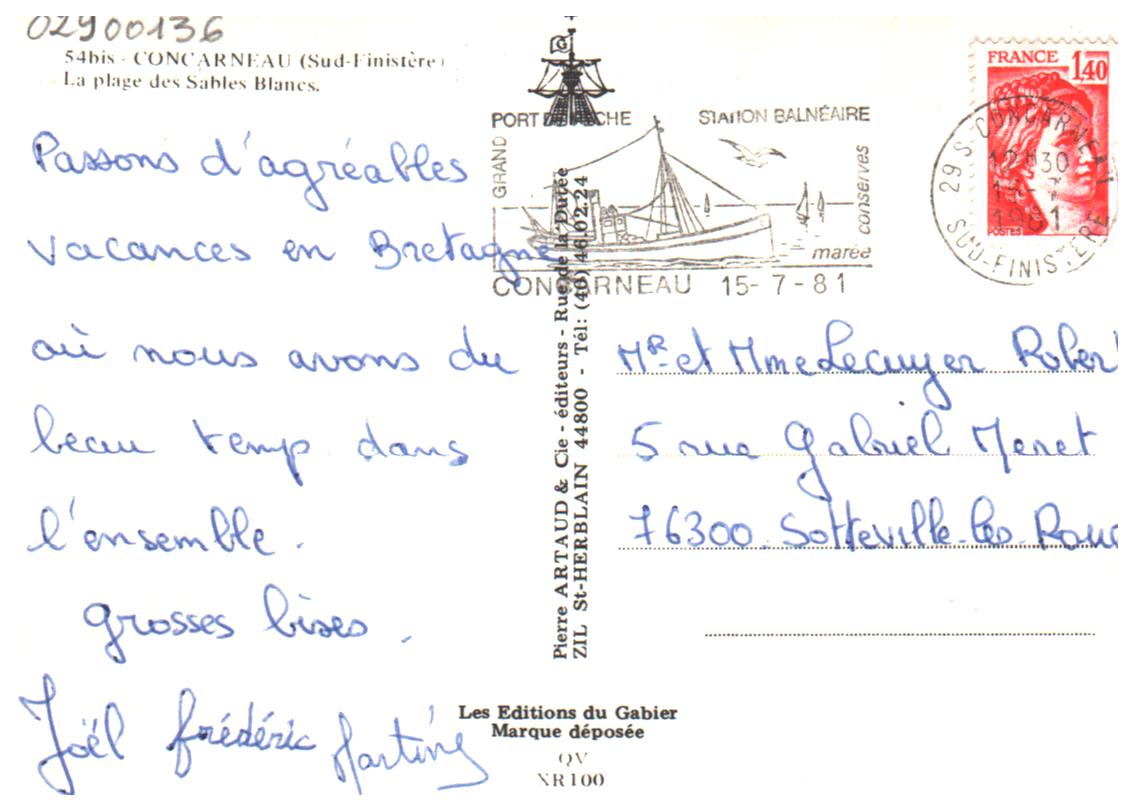 02900136
54bis - CONCARNEAU (Sud-Finistère)
La plage des Sables Blancs.
Passons d'agréables
vacances en Bretagne
où nous avons du
beau temps dans
l'ensemble.
grosses bises.
Joël frédéric Martine
G
Pierre ARTAUD & Cie - éditeurs - Rue de la Dutée
ZIL St-HERBLAIN 44800 - Tél: (40) 46.02.24
Les Editions du Gabier
Marque déposée
QV
XR100
GRAND
PORT DE PÊCHE STATION BALNÉAIRE
conserves
marée
CONCARNEAU 15-7-81
FRANCE 1,40
POSTES
29 S. CONCARNEAU
12H30
15-7
1981
SUD-FINISTERE
Mr et Mme Lecuyer Rober
5 rue Gabriel Meret
76300 Sotteville-les-Roue